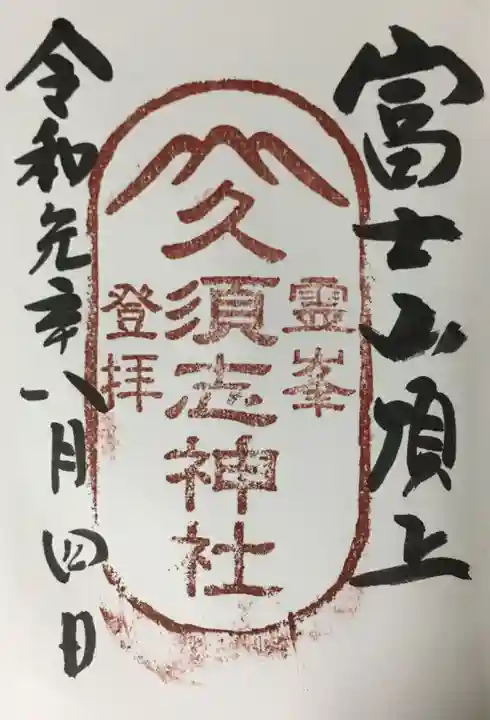 富士山頂上
霊峯
久須志神社
登拝
令和元年八月四日